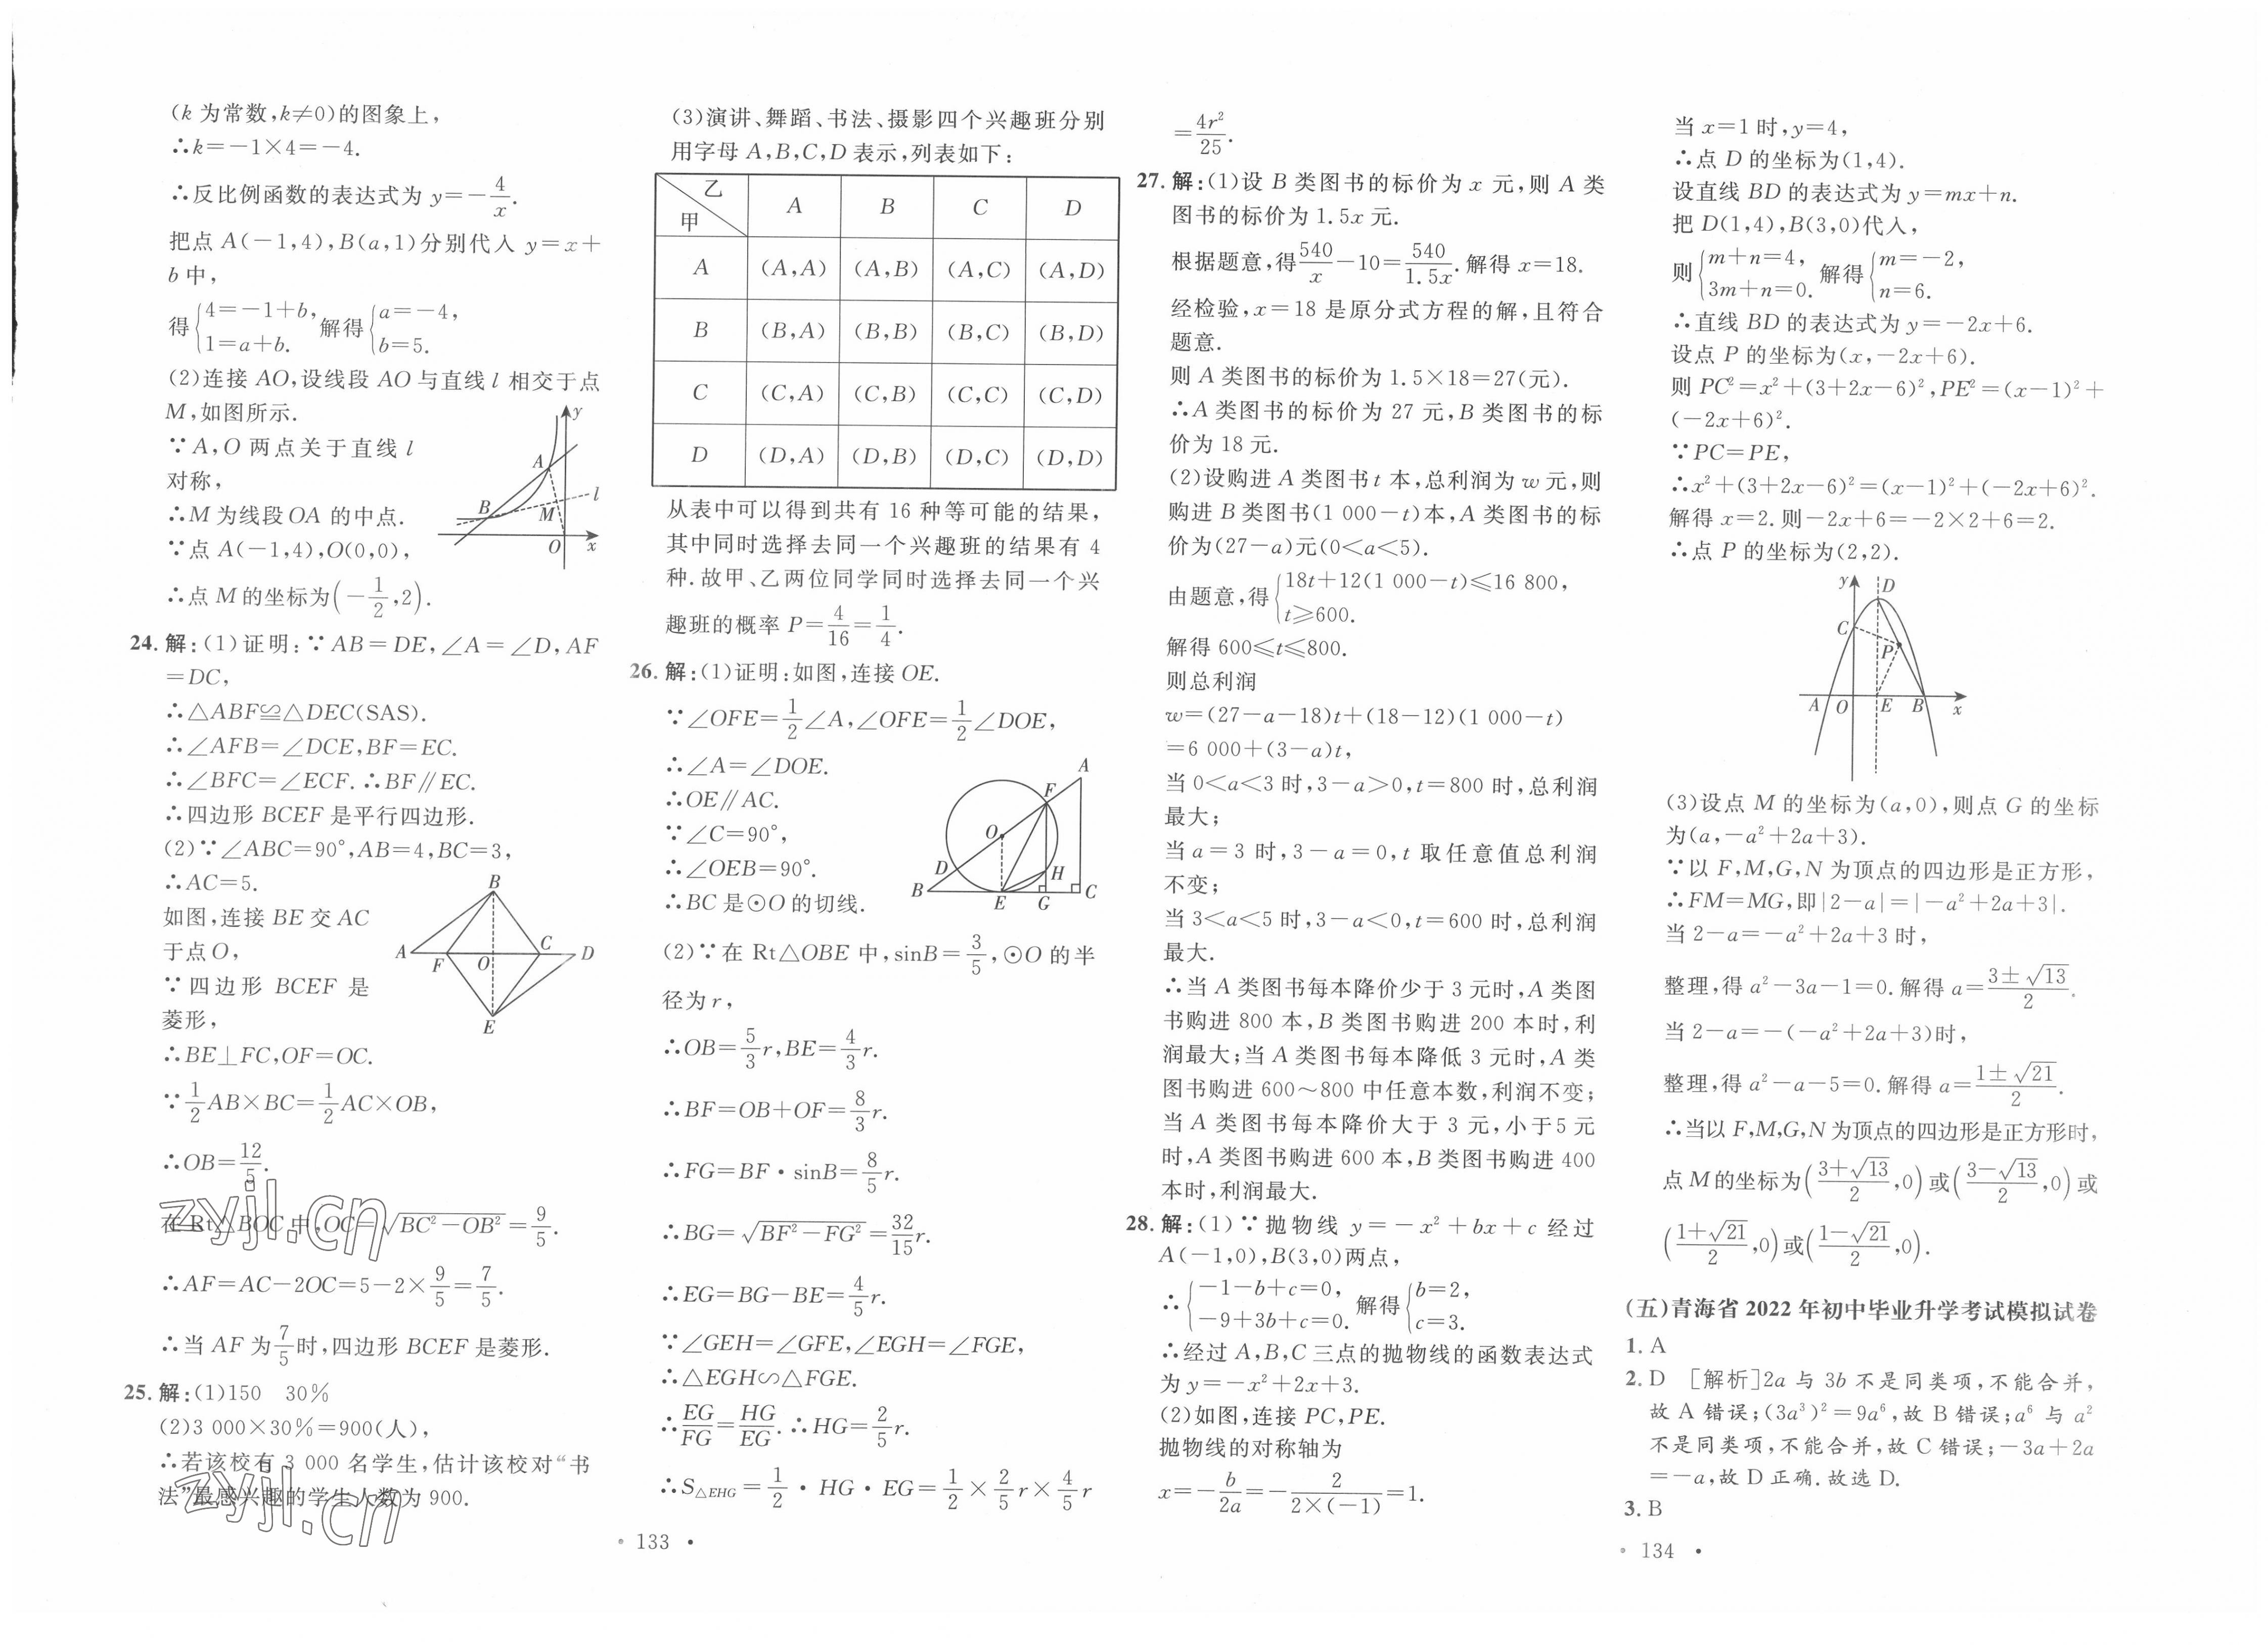 (k 为常数,k≠0)的图象上,
∴k=-1×4=-4.
∴反比例函数的表达式为 y=-4/x.
把点 A(-1,4),B(a,1)分别代入 y=x+
b 中,
得{4=-1+b, 1=a+b. 解得{a=-4, b=5.
(2)连接 AO,设线段 AO 与直线 l 相交于点
M,如图所示.
∵A,O 两点关于直线 l
对称,
∴M 为线段OA 的中点.
∵点 A(-1,4),O(0,0),
∴点 M 的坐标为(-1/2,2).
y
A
l
B
M
O
x
24. 解:(1)证明:∵AB=DE,∠A=∠D,AF
=DC,
∴△ABF≌△DEC(SAS).
∴∠AFB=∠DCE,BF=EC.
∴∠BFC=∠ECF.∴BF∥EC.
∴四边形 BCEF 是平行四边形.
(2)∵∠ABC=90°,AB=4,BC=3,
∴AC=5.
如图,连接 BE 交 AC
于点 O,
∵四边形 BCEF 是
菱形,
B
A
F
O
C
D
E
∴BE⊥FC,OF=OC.
∵1/2AB×BC=1/2AC×OB,
∴OB=12/5.
在 Rt△BOC 中,OC=√(BC²-OB²)=9/5.
∴AF=AC-2OC=5-2×9/5=7/5.
∴当 AF 为7/5时,四边形 BCEF 是菱形.
25. 解:(1)150 30%
(2)3 000×30%=900(人),
∴若该校有 3 000 名学生,估计该校对“书
法”最感兴趣的学生人数为 900.
zyjl.cn
zyjl.cn
(3)演讲、舞蹈、书法、摄影四个兴趣班分别
用字母 A,B,C,D 表示,列表如下:
乙 甲 A B C D
A (A,A) (A,B) (A,C) (A,D)
B (B,A) (B,B) (B,C) (B,D)
C (C,A) (C,B) (C,C) (C,D)
D (D,A) (D,B) (D,C) (D,D)
从表中可以得到共有 16 种等可能的结果,
其中同时选择去同一个兴趣班的结果有 4
种.故甲、乙两位同学同时选择去同一个兴
趣班的概率 P=4/16=1/4.
26. 解:(1)证明:如图,连接 OE.
∵∠OFE=1/2∠A,∠OFE=1/2∠DOE,
∴∠A=∠DOE.
∴OE∥AC.
∵∠C=90°,
∴∠OEB=90°.
∴BC 是⊙O 的切线.
A
F
O
D
H
B
E
G
C
(2)∵在 Rt△OBE 中,sinB=3/5,⊙O 的半
径为 r,
∴OB=5/3r,BE=4/3r.
∴BF=OB+OF=8/3r.
∴FG=BF·sinB=8/5r.
∴BG=√(BF²-FG²)=32/15r.
∴EG=BG-BE=4/5r.
∵∠GEH=∠GFE,∠EGH=∠FGE,
∴△EGH∽△FGE.
∴EG/FG=HG/EG.∴HG=2/5r.
∴S△EHG=1/2·HG·EG=1/2×2/5r×4/5r
• 133 •
=4r²/25.
27. 解:(1)设 B 类图书的标价为 x 元,则 A 类
图书的标价为 1.5x 元.
根据题意,得540/x-10=540/1.5x.解得 x=18.
经检验,x=18 是原分式方程的解,且符合
题意.
则 A 类图书的标价为 1.5×18=27(元).
∴A 类图书的标价为 27 元,B 类图书的标
价为 18 元.
(2)设购进 A 类图书 t 本,总利润为 w 元,则
购进 B 类图书(1 000-t)本,A 类图书的标
价为(27-a)元(0<a<5).
由题意,得{18t+12(1 000-t)≤16 800, t≥600.
解得 600≤t≤800.
则总利润
w=(27-a-18)t+(18-12)(1 000-t)
=6 000+(3-a)t,
当 0<a<3 时,3-a>0,t=800 时,总利润
最大;
当 a=3 时,3-a=0,t 取任意值总利润
不变;
当 3<a<5 时,3-a<0,t=600 时,总利润
最大.
∴当 A 类图书每本降价少于 3 元时,A 类图
书购进 800 本,B 类图书购进 200 本时,利
润最大;当 A 类图书每本降低 3 元时,A 类
图书购进 600～800 中任意本数,利润不变;
当 A 类图书每本降价大于 3 元,小于5 元
时,A 类图书购进 600 本,B 类图书购进 400
本时,利润最大.
28. 解:(1)∵抛物线 y=-x²+bx+c 经过
A(-1,0),B(3,0)两点,
∴{-1-b+c=0, -9+3b+c=0. 解得{b=2, c=3.
∴经过 A,B,C 三点的抛物线的函数表达式
为 y=-x²+2x+3.
(2)如图,连接 PC,PE.
抛物线的对称轴为
x=-b/2a=-2/(2×(-1))=1.
当 x=1 时,y=4,
∴点 D 的坐标为(1,4).
设直线 BD 的表达式为 y=mx+n.
把 D(1,4),B(3,0)代入,
则{m+n=4, 3m+n=0. 解得{m=-2, n=6.
∴直线 BD 的表达式为 y=-2x+6.
设点 P 的坐标为(x,-2x+6).
则 PC²=x²+(3+2x-6)²,PE²=(x-1)²+
(-2x+6)².
∵PC=PE,
∴x²+(3+2x-6)²=(x-1)²+(-2x+6)².
解得 x=2.则-2x+6=-2×2+6=2.
∴点 P 的坐标为(2,2).
y
D
C
P
A
O
E
B
x
(3)设点 M 的坐标为(a,0),则点 G 的坐标
为(a,-a²+2a+3).
∵以 F,M,G,N 为顶点的四边形是正方形,
∴FM=MG,即|2-a|=|-a²+2a+3|.
当 2-a=-a²+2a+3 时,
整理,得 a²-3a-1=0.解得 a=(3±√13)/2.
当 2-a=-(-a²+2a+3)时,
整理,得 a²-a-5=0.解得 a=(1±√21)/2.
∴当以 F,M,G,N 为顶点的四边形是正方形时,
点 M 的坐标为((3+√13)/2,0)或((3-√13)/2,0)或
((1+√21)/2,0)或((1-√21)/2,0).
(五)青海省 2022 年初中毕业升学考试模拟试卷
1. A
2. D [解析]2a 与 3b 不是同类项,不能合并,
故 A 错误;(3a³)²=9a⁶,故 B 错误;a⁶ 与 a²
不是同类项,不能合并,故 C 错误;-3a+2a
=-a,故 D 正确.故选 D.
3. B
• 134 •